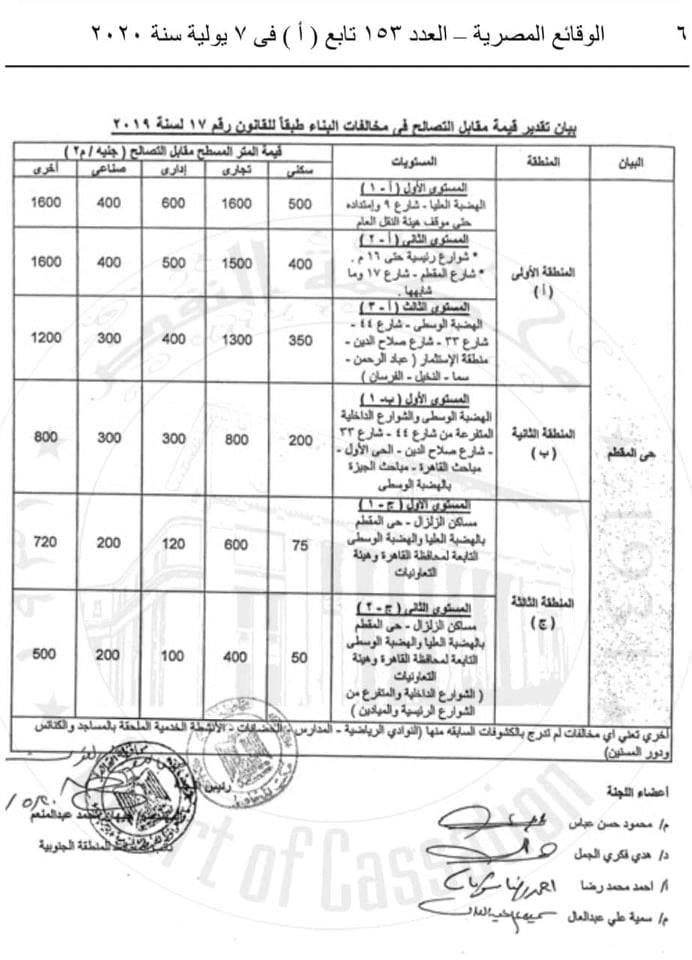 ٦ الوقائع المصرية – العدد ١٥٣ تابع ( أ ) فى ٧ يولية سنة ٢٠٢٠
بيان تقدير قيمة مقابل التصالح في مخالفات البناء طبقاً للقانون رقم ١٧ لسنة ٢٠١٩
البيان المنطقة المستويات قيمة المتر المسطح مقابل التصالح ( جنيه / م٢ )
سكنى تجارى إدارى صناعى أخرى
حى المقطم
المنطقة الأولى
( أ )
المستوى الأول ( أ - ١ )
الهضبة العليا - شارع ٩ وإمتداده
حتى موقف هيئة النقل العام
500 1600 600 400 1600
المستوى الثانى ( أ - ٢ )
* شوارع رئيسية حتى ١٦ م .
* شارع المقطم - شارع ١٧ وما
شابهها .
400 1500 500 400 1600
المستوى الثالث ( أ - ٣ )
الهضبة الوسطى - شارع ٤٤ -
شارع ٣٣ - شارع صلاح الدين -
منطقة الإستثمار ( عباد الرحمن -
سما - النخيل - الفرسان )
350 1300 400 300 1200
المنطقة الثانية
( ب )
المستوى الأول ( ب - ١ )
الهضبة الوسطى والشوارع الداخلية
المتفرعة من شارع ٤٤ - شارع ٣٣
- شارع صلاح الدين - الحى الأول -
مباحث القاهرة - مباحث الجيزة
بالهضبة الوسطى
200 800 300 300 800
المنطقة الثالثة
( ج )
المستوى الأول ( ج - ١ )
مساكن الزلزال - حى المقطم
بالهضبة العليا والهضبة الوسطى
التابعة لمحافظة القاهرة وهيئة
التعاونيات
75 600 120 200 720
المستوى الثانى ( ج - ٢ )
مساكن الزلزال - حى المقطم
بالهضبة العليا والهضبة الوسطى
التابعة لمحافظة القاهرة وهيئة
التعاونيات
( الشوارع الداخلية والمتفرع من
الشوارع الرئيسية والميادين )
50 400 100 200 500
أخري تعني أي مخالفات لم تدرج بالكشوفات السابقه منها (النوادي الرياضية - المدارس - الحضانات - الأنشطة الخدمية الملحقة بالمساجد والكنائس
ودور المسنين)
أعضاء اللجنة
م/ محمود حسن عباس
د/ هدي فكري الجمل
أ/ احمد محمد رضا
م/ سمية علي عبدالعال
رئيس
جيهان عبدالمنعم
للمنطقة الجنوبية
Court of Cassation
1931